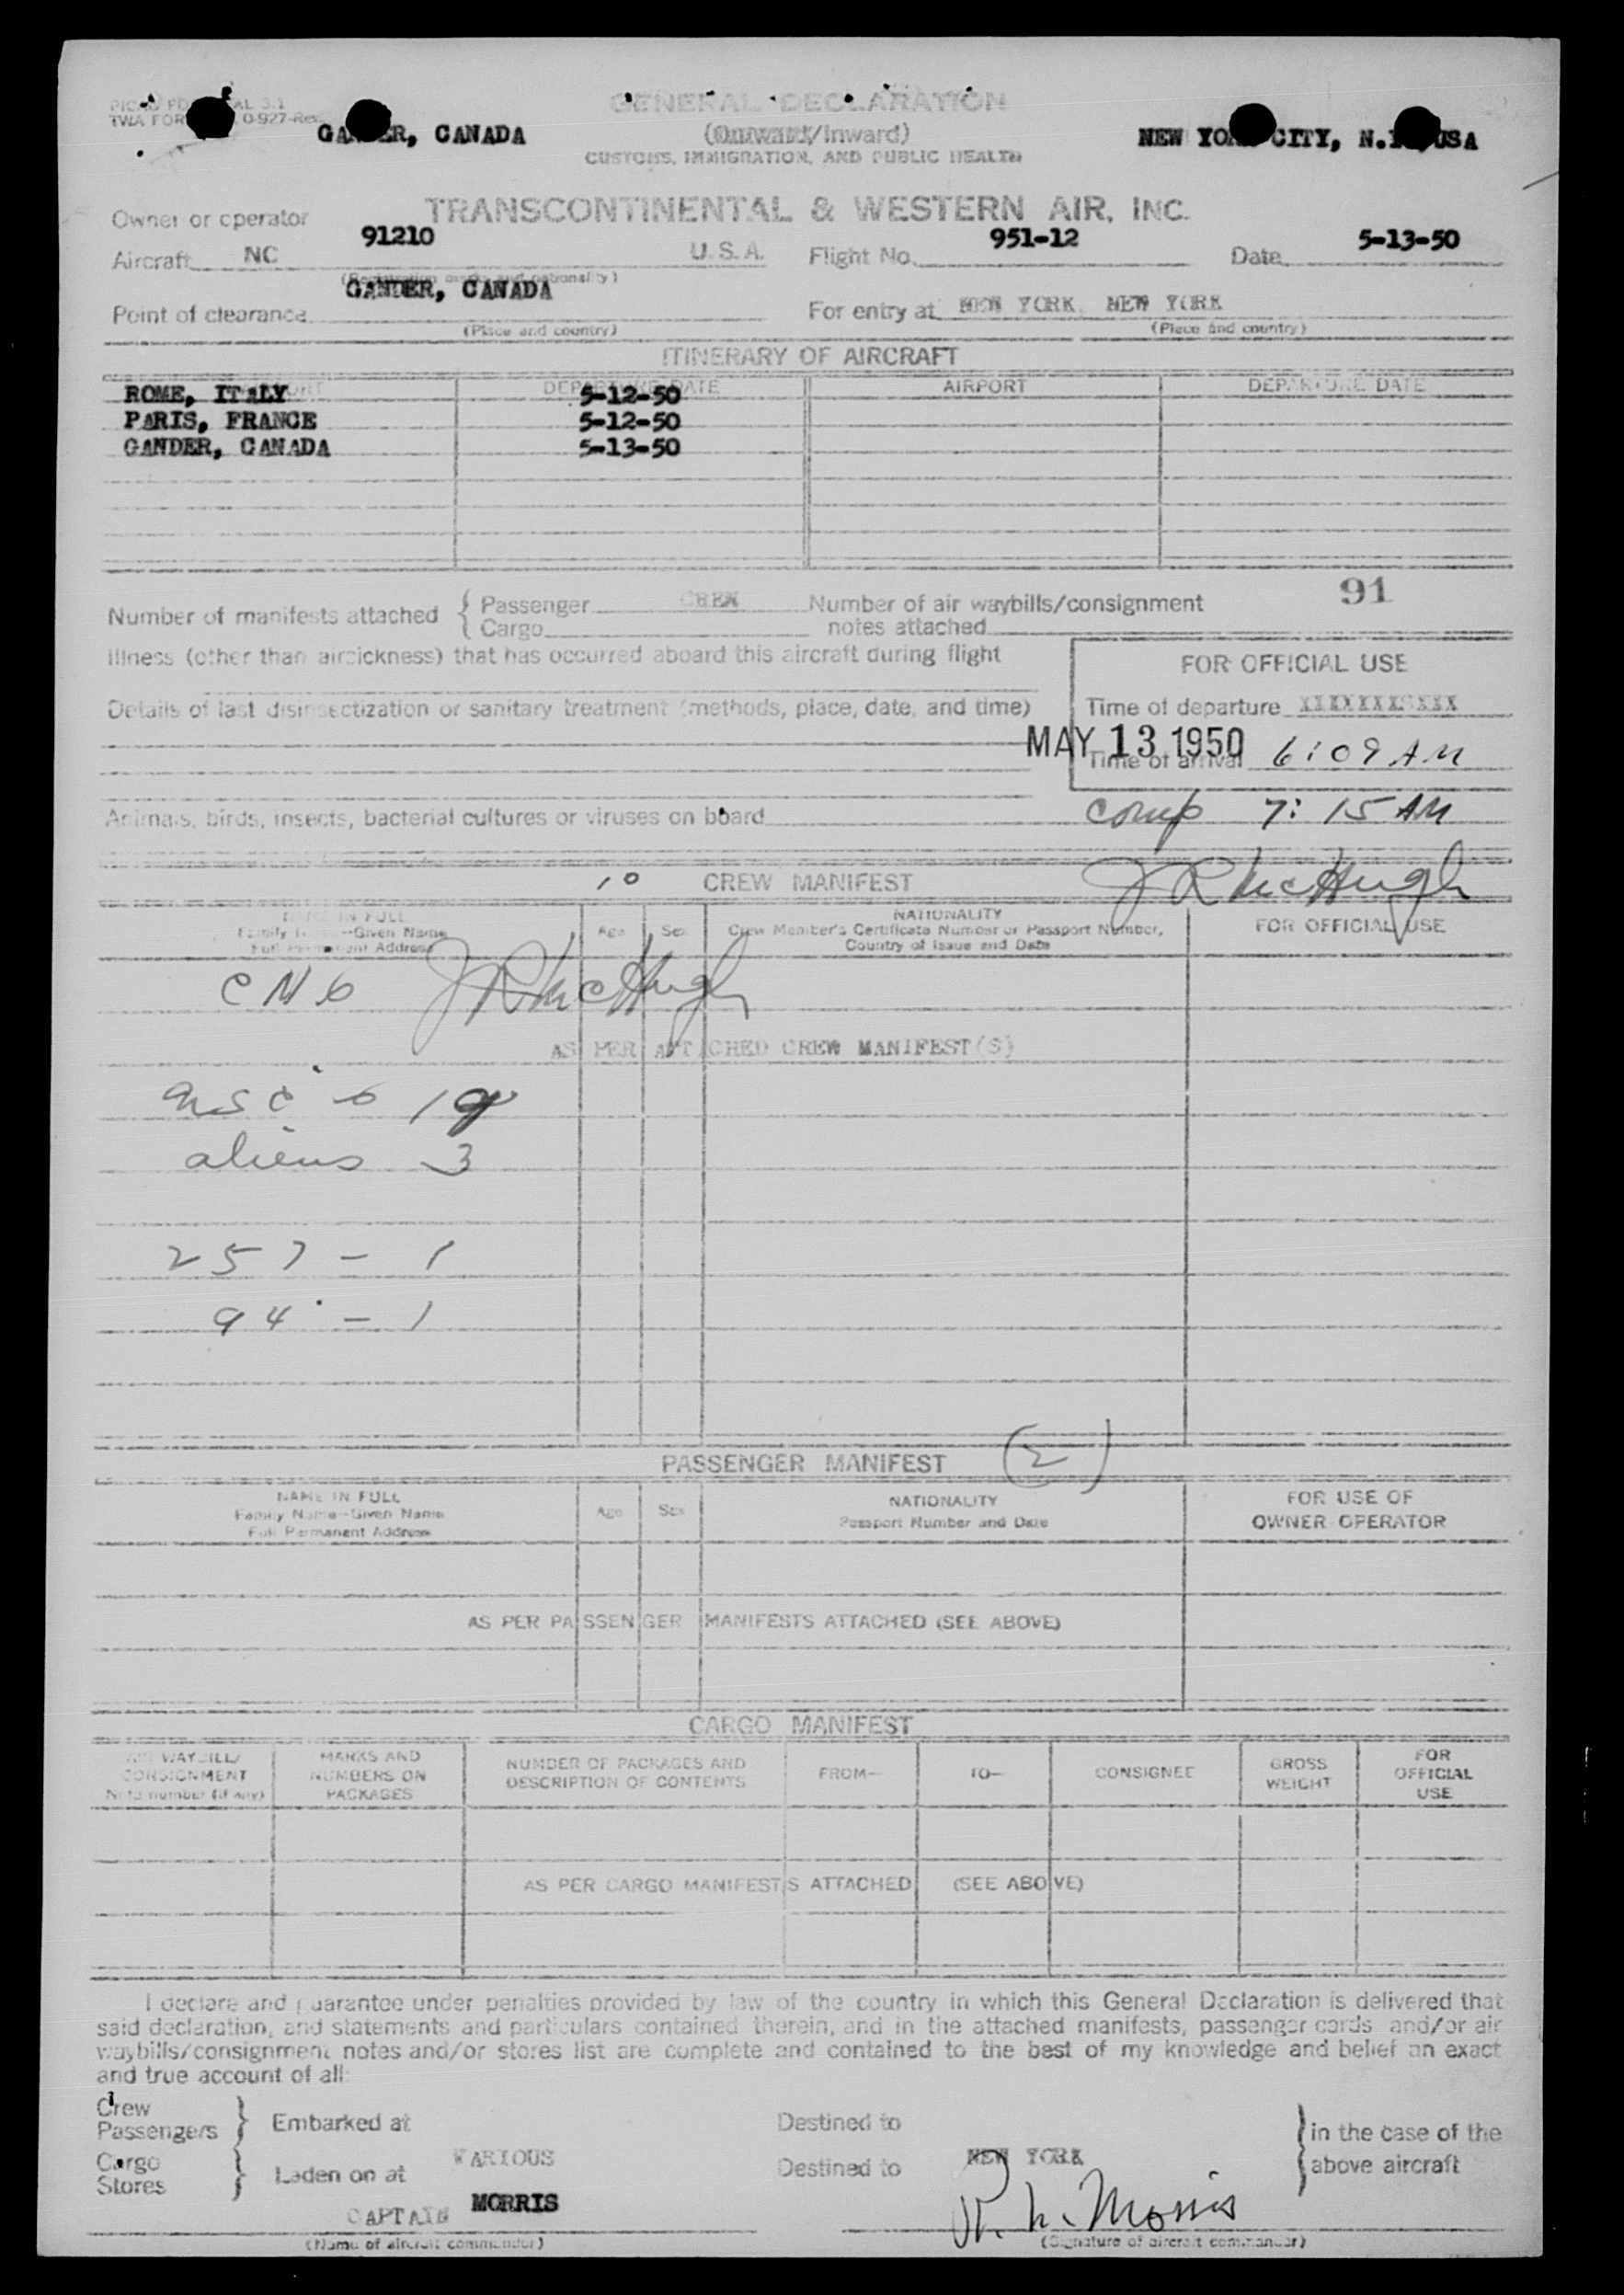 TWA FOR 0-927-Rev.
GENERAL DECLARATION
(Outward/Inward)
CUSTOMS, IMMIGRATION, AND PUBLIC HEALTH
CANADA
NEW CITY, USA
Owner or operator TRANSCONTINENTAL & WESTERN AIR, INC.
Aircraft NC 91210 U.S.A. Flight No. 951-12 Date 5-13-50
(Registration marks and nationality)
Point of clearance GANDER, CANADA For entry at NEW YORK, NEW YORK
(Place and country) (Place and country)
ITINERARY OF AIRCRAFT
DEPARTURE DATE AIRPORT DEPARTURE DATE
ROME, ITALY 5-12-50
PARIS, FRANCE 5-12-50
GANDER, CANADA 5-13-50
91
Number of manifests attached { Passenger CREW Number of air waybills/consignment
Cargo notes attached
Illness (other than airsickness) that has occurred aboard this aircraft during flight
FOR OFFICIAL USE
Details of last disinsectization or sanitary treatment (methods, place, date, and time)
Time of departure
MAY 13 1950
Time of arrival 6:09 AM
Animals, birds, insects, bacterial cultures or viruses on board
comp 7:15 AM
10 CREW MANIFEST
J R McHugh
NAME IN FULL
Family Name--Given Name
Full Permanent Address
Age Sex
NATIONALITY
Crew Member's Certificate Number or Passport Number,
Country of Issue and Date
FOR OFFICIAL USE
J R McHugh
AS PER ATTACHED CREW MANIFEST(S)
aliens 3
257 - 1
94 - 1
PASSENGER MANIFEST (2)
NAME IN FULL
Family Name--Given Name
Full Permanent Address
Age Sex
NATIONALITY
Passport Number and Date
FOR USE OF
OWNER OPERATOR
AS PER PASSENGER MANIFESTS ATTACHED (SEE ABOVE)
CARGO MANIFEST
AIR WAYBILL/
CONSIGNMENT
Note number (if any)
MARKS AND
NUMBERS ON
PACKAGES
NUMBER OF PACKAGES AND
DESCRIPTION OF CONTENTS
FROM—
TO—
CONSIGNEE
GROSS
WEIGHT
FOR
OFFICIAL
USE
AS PER CARGO MANIFESTS ATTACHED (SEE ABOVE)
I declare and guarantee under penalties provided by law of the country in which this General Declaration is delivered that
said declaration, and statements and particulars contained therein, and in the attached manifests, passenger cards and/or air
waybills/consignment notes and/or stores list are complete and contained to the best of my knowledge and belief an exact
and true account of all:
Crew
Passengers } Embarked at Destined to } in the case of the
Cargo
Stores } Laden on at VARIOUS Destined to NEW YORK above aircraft
CAPTAIN MORRIS Morris
(Name of aircraft commander) (Signature of aircraft commander)